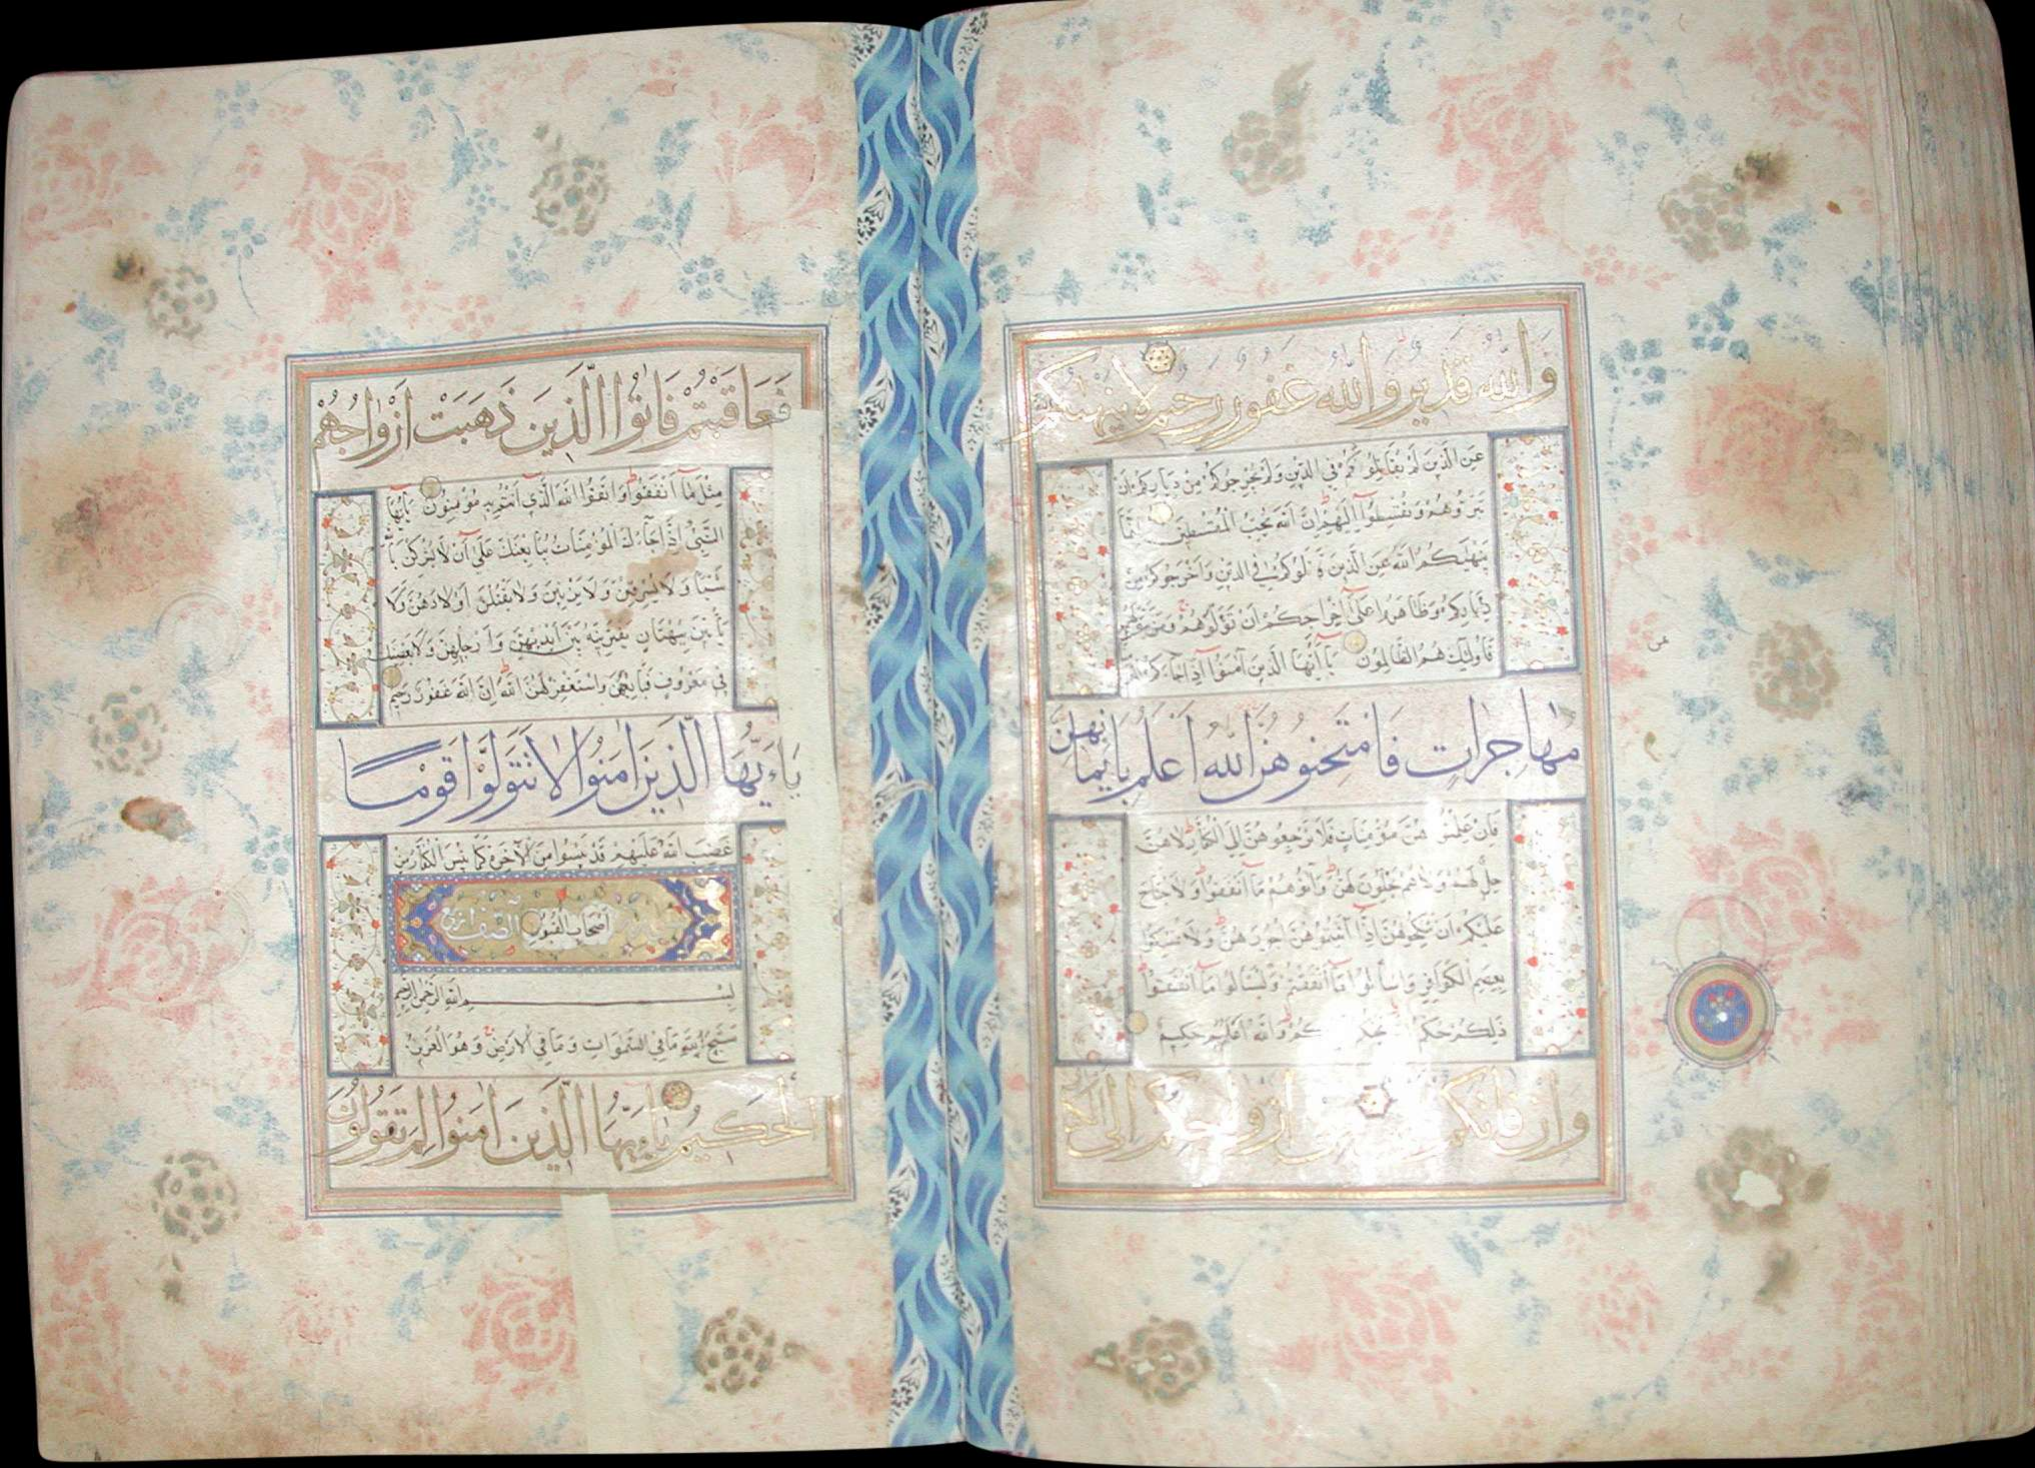 والله قدير والله غفور رحيم لا ينهاكم
عن الذين لم يقاتلوكم في الدين ولم يخرجوكم من دياركم ان
تبروهم وتقسطوا اليهم ان الله يحب المقسطين انما
ينهيكم الله عن الذين قاتلوكم في الدين واخرجوكم من
دياركم وظاهروا على اخراجكم ان تولوهم ومن يتولهم
فاولئك هم الظالمون يا ايها الذين آمنوا اذا جاءكم
مهاجرات فامتحنوهن الله اعلم بايمانهن
فان علمتموهن مؤمنات فلا ترجعوهن الى الكفار لا هن
حل لهم ولا هم يحلون لهن وآتوهم ما انفقوا ولا جناح
عليكم ان تنكحوهن اذا آتيتموهن اجورهن ولا تمسكوا
بعصم الكوافر واسألوا ما انفقتم وليسألوا ما انفقوا
ذلكم حكم يحكم والله عليم حكيم
وان فاتكم ازواجكم الى
من
فعاقبتم فاتوا الذين ذهبت ازواجهم
مثل ما انفقوا واتقوا الله الذي انتم به مؤمنون يا ايها
النبي اذا جاءك المؤمنات يبايعنك على ان لا يشركن
شيئا ولا يسرقن ولا يزنين ولا يقتلن اولادهن ولا
يأتين ببهتان يفترينه بين ايديهن وارجلهن ولا يعصينك
في معروف فبايعهن واستغفر لهن الله ان الله غفور رحيم
ياءيها الذين امنوا لا تتولوا قوما
غضب الله عليهم قد يئسوا من الآخرة كما يئس الكفار من
اصحاب القبور
بسم الله الرحمن الرحيم
سبح لله ما في السموات وما في الارض وهو العزيز
الحكيم ياءيها الذين امنوا لم تقولون